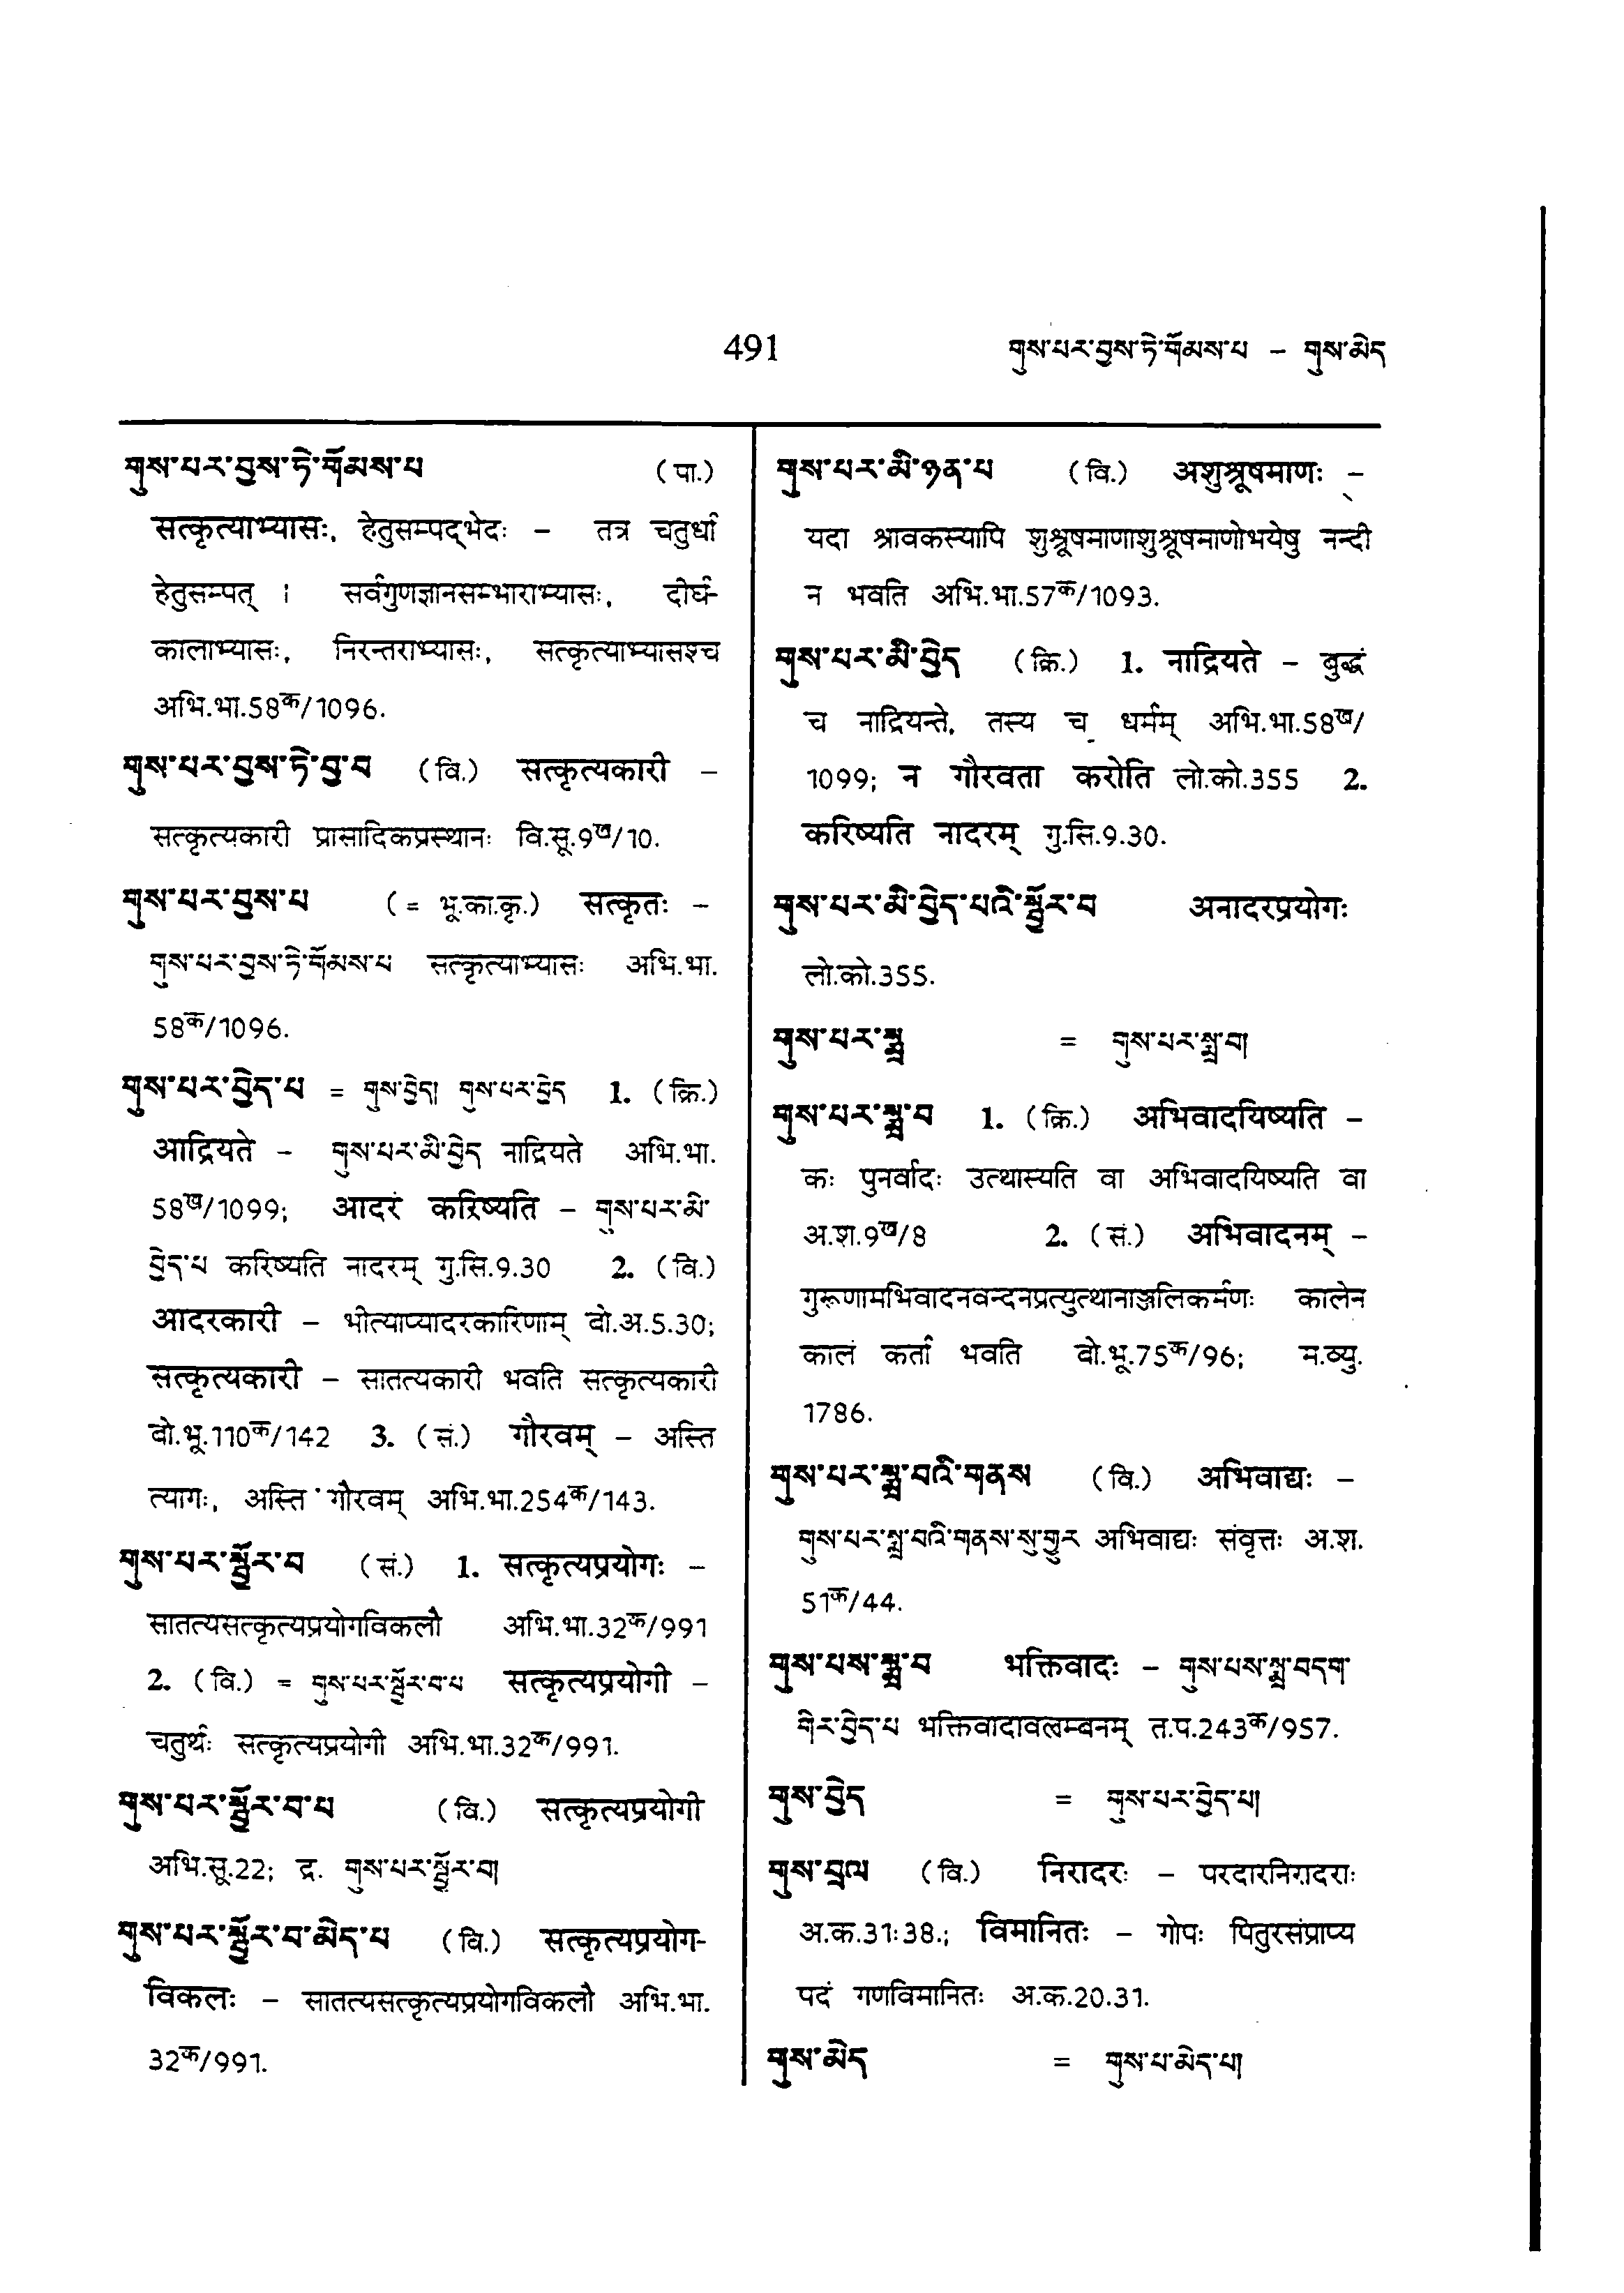 491
གུས་པར་བྱས་ཏེ་གོམས་པ – གུས་མེད
གུས་པར་བྱས་ཏེ་གོམས་པ (पा.)
सत्कृत्याभ्यासः, हेतुसम्पद्भेदः – तत्र चतुर्धा
हेतुसम्पत् । सर्वगुणज्ञानसम्भाराभ्यासः, दीर्घ-
कालाभ्यासः, निरन्तराभ्यासः, सत्कृत्याभ्यासश्च
अभि.भा.58क/1096.
གུས་པར་བྱས་ཏེ་བྱ་བ (वि.) सत्कृत्यकारी –
सत्कृत्यकारी प्रासादिकप्रस्थानः वि.सू.9ख/10.
གུས་པར་བྱས་པ (= भू.का.कृ.) सत्कृतः –
གུས་པར་བྱས་ཏེ་གོམས་པ सत्कृत्याभ्यासः अभि.भा.
58क/1096.
གུས་པར་བྱེད་པ = གུས་བྱེད། གུས་པར་བྱེད 1. (क्रि.)
आद्रियते – གུས་པར་མི་བྱེད नाद्रियते अभि.भा.
58ख/1099; आदरं करिष्यति – གུས་པར་མི་
བྱེད་པ करिष्यति नादरम् गु.सि.9.30 2. (वि.)
आदरकारी – भीत्याप्यादरकारिणाम् बो.अ.5.30;
सत्कृत्यकारी – सातत्यकारी भवति सत्कृत्यकारी
बो.भू.110क/142 3. (सं.) गौरवम् – अस्ति
त्यागः, अस्ति गौरवम् अभि.भा.254क/143.
གུས་པར་སྦྱོར་བ (सं.) 1. सत्कृत्यप्रयोगः –
सातत्यसत्कृत्यप्रयोगविकलौ अभि.भा.32क/991
2. (वि.) = གུས་པར་སྦྱོར་བ་པ सत्कृत्यप्रयोगी –
चतुर्थः सत्कृत्यप्रयोगी अभि.भा.32क/991.
གུས་པར་སྦྱོར་བ་པ (वि.) सत्कृत्यप्रयोगी
अभि.सू.22; द्र. གུས་པར་སྦྱོར་བ།
གུས་པར་སྦྱོར་བ་མེད་པ (वि.) सत्कृत्यप्रयोग-
विकलः – सातत्यसत्कृत्यप्रयोगविकलौ अभि.भा.
32क/991.
གུས་པར་མི་ཉན་པ (वि.) अशुश्रूषमाणः –
यदा श्रावकस्यापि शुश्रूषमाणाशुश्रूषमाणोभयेषु नन्दी
न भवति अभि.भा.57क/1093.
གུས་པར་མི་བྱེད (क्रि.) 1. नाद्रियते – बुद्धं
च नाद्रियन्ते, तस्य च धर्मम् अभि.भा.58ख/
1099; न गौरवता करोति लो.को.355 2.
करिष्यति नादरम् गु.सि.9.30.
གུས་པར་མི་བྱེད་པའི་སྦྱོར་བ अनादरप्रयोगः
लो.को.355.
གུས་པར་སྨྲ = གུས་པར་སྨྲ་བ།
གུས་པར་སྨྲ་བ 1. (क्रि.) अभिवादयिष्यति –
कः पुनर्वादः उत्थास्यति वा अभिवादयिष्यति वा
अ.श.9ख/8 2. (सं.) अभिवादनम् –
गुरूणामभिवादनवन्दनप्रत्युत्थानाञ्जलिकर्मणः कालेन
कालं कर्ता भवति बो.भू.75क/96; म.व्यु.
1786.
གུས་པར་སྨྲ་བའི་གནས (वि.) अभिवाद्यः –
གུས་པར་སྨྲ་བའི་གནས་སུ་གྱུར अभिवाद्यः संवृत्तः अ.श.
51क/44.
གུས་པས་སྨྲ་བ भक्तिवादः – གུས་པས་སྨྲ་བདག་
གིར་བྱེད་པ भक्तिवादावलम्बनम् त.प.243क/957.
གུས་བྱེད = གུས་པར་བྱེད་པ།
གུས་བྲལ (वि.) निरादरः – परदारनिरादराः
अ.क.31:38.; विमानितः – गोपः पितुरसंप्राप्य
पदं गणविमानितः अ.क.20.31.
གུས་མེད = གུས་པ་མེད་པ།